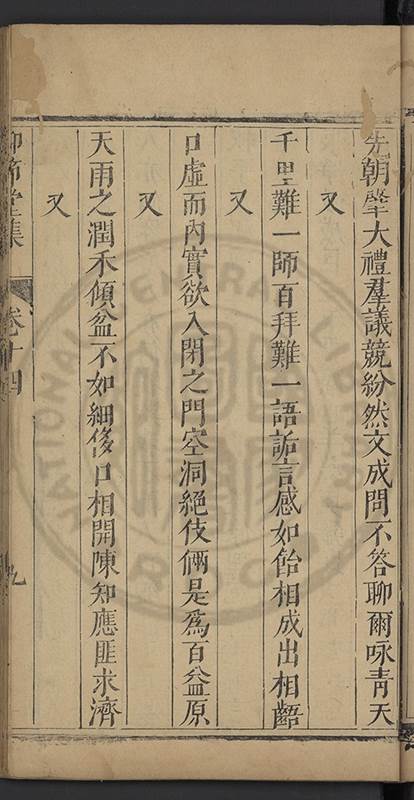 先朝肇大禮羣議競紛然文成問不答聊爾咏青天
又
千里難一師百拜難一語詬言感如飴相成出相齬
又
口虛而內實欲入閉之門空洞絕伎倆是為百益原
又
天雨之潤禾傾盆不如細俟口相開陳知應匪求濟
又
仰節堂集
卷十四
九